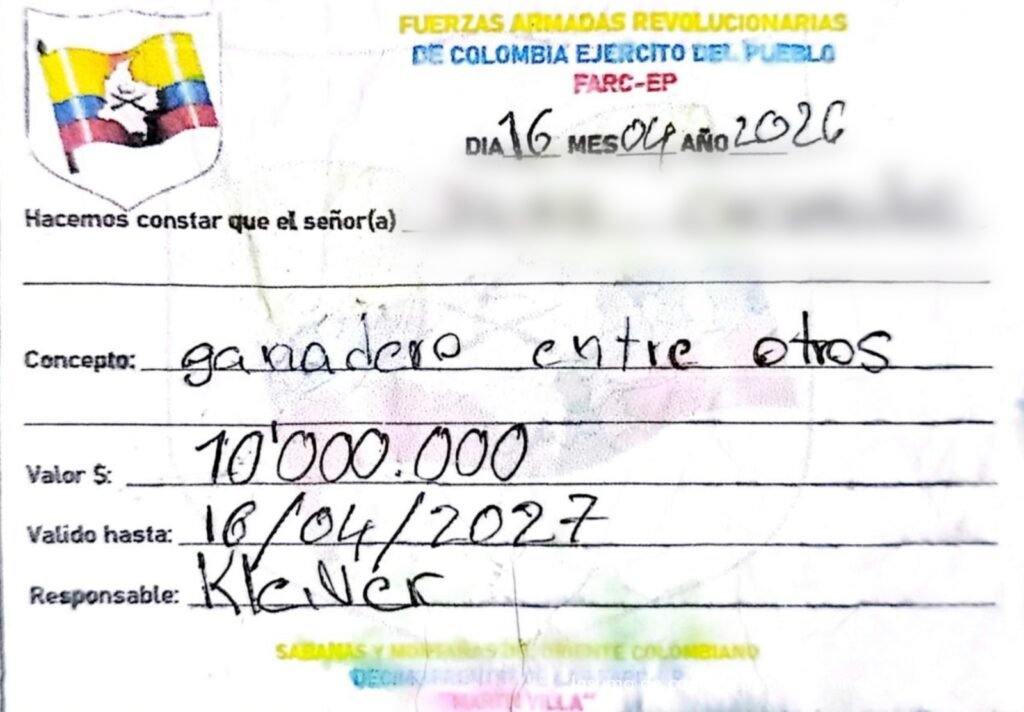 FUERZAS ARMADAS REVOLUCIONARIAS
DE COLOMBIA EJERCITO DEL PUEBLO
FARC-EP
DIA 16 MES 04 AÑO 2026
Hacemos constar que el señor(a)
Concepto: ganadero entre otros
Valor $: 10'000.000
Valido hasta: 16/04/2027
Responsable: Kleiver
SABANAS Y MONTAÑAS DEL ORIENTE COLOMBIANO
FRENTE DE LAS FARC-EP
"MARTIN VILLA"